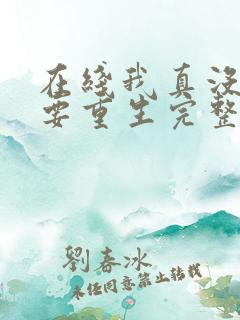 在綫我真没
要重生完整
劉春冰
未经同意禁止转载